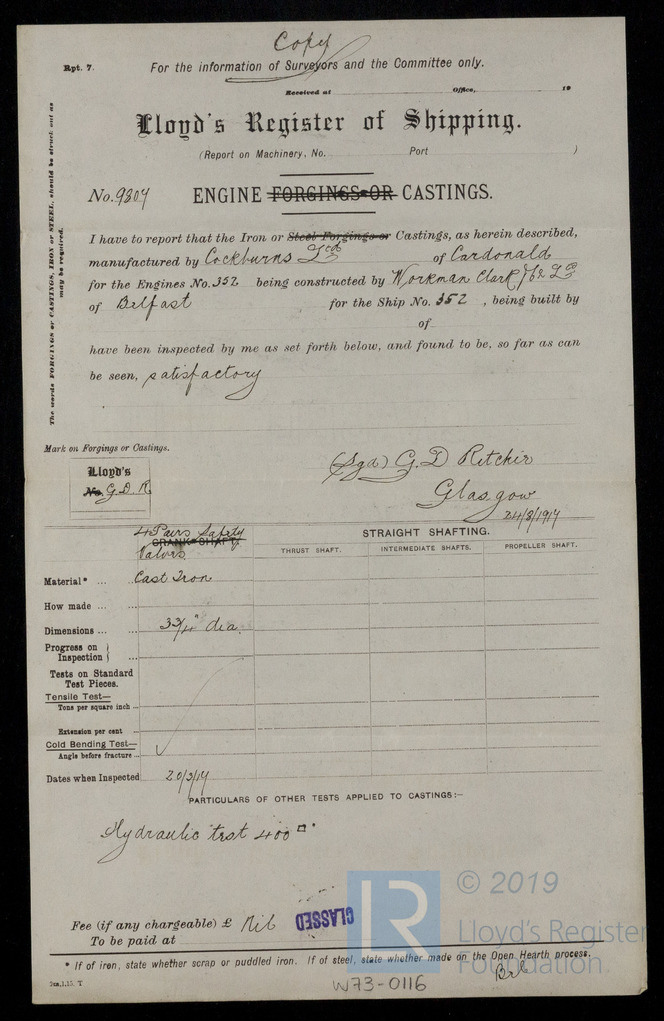 Copy
Rpt. 7.
For the information of Surveyors and the Committee only.
Received at Office, 19
Lloyd's Register of Shipping.
(Report on Machinery, No. Port )
No. 9307
ENGINE FORGINGS OR CASTINGS.
The words FORGINGS or CASTINGS, IRON or STEEL, should be struck out as
may be required.
I have to report that the Iron or Steel Forgings or Castings, as herein described,
manufactured by Cockburns Ltd of Cardonald
for the Engines No. 352 being constructed by Workman Clark & Co Ld
of Belfast for the Ship No. 352, being built by
of
have been inspected by me as set forth below, and found to be, so far as can
be seen, satisfactory
Mark on Forgings or Castings.
Lloyd's
No. G.D.R
(Sgd) G. D Ritchie
Glasgow
24/3/1917
4 Pairs Safety
CRANK SHAFT.
Valves
STRAIGHT SHAFTING.
THRUST SHAFT. INTERMEDIATE SHAFTS. PROPELLER SHAFT.
Material* ... ... Cast Iron
How made ... ...
Dimensions ... ... 3 3/4" dia.
Progress on
Inspection } ...
Tests on Standard
Test Pieces.
Tensile Test—
Tons per square inch ...
Extension per cent ...
Cold Bending Test—
Angle before fracture ...
Dates when Inspected 20/3/17
PARTICULARS OF OTHER TESTS APPLIED TO CASTINGS:—
Hydraulic test 400 □"
Fee (if any chargeable) £ Nil
CLASSED
To be paid at
* If of iron, state whether scrap or puddled iron. If of steel, state whether made on the Open Hearth process.
Bel
W73-0116
LR
© 2019
Lloyd's Register
Foundation